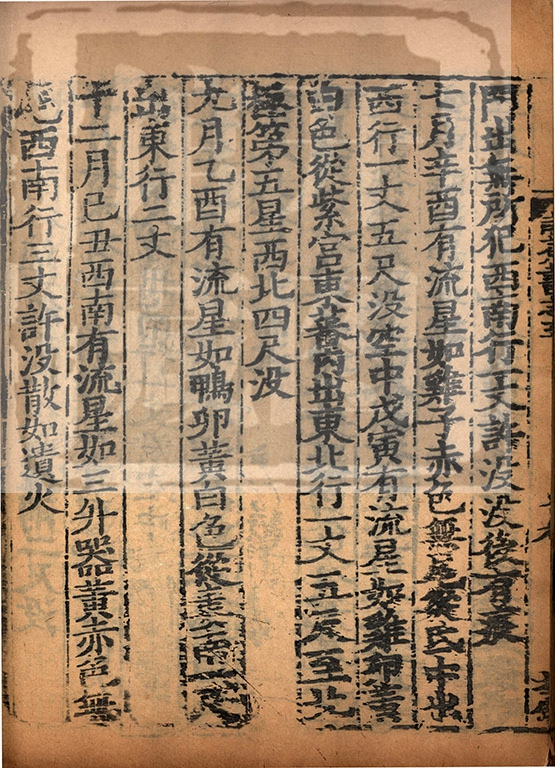 門出無所犯西南行一丈許没没後有痕
七月辛酉有流星如雞子赤色無尾從氐中出
西行一丈五尺没空中戊寅有流星如雞卵黄
白色從紫宫東蕃内出東北行一丈五尺至北
極第五星西北四尺没
九月乙酉有流星如鴨卵黄白色從南一丈
出東行二丈
十二月己丑西南有流星如三升器黄赤色無
尾西南行三丈許没散如遺火